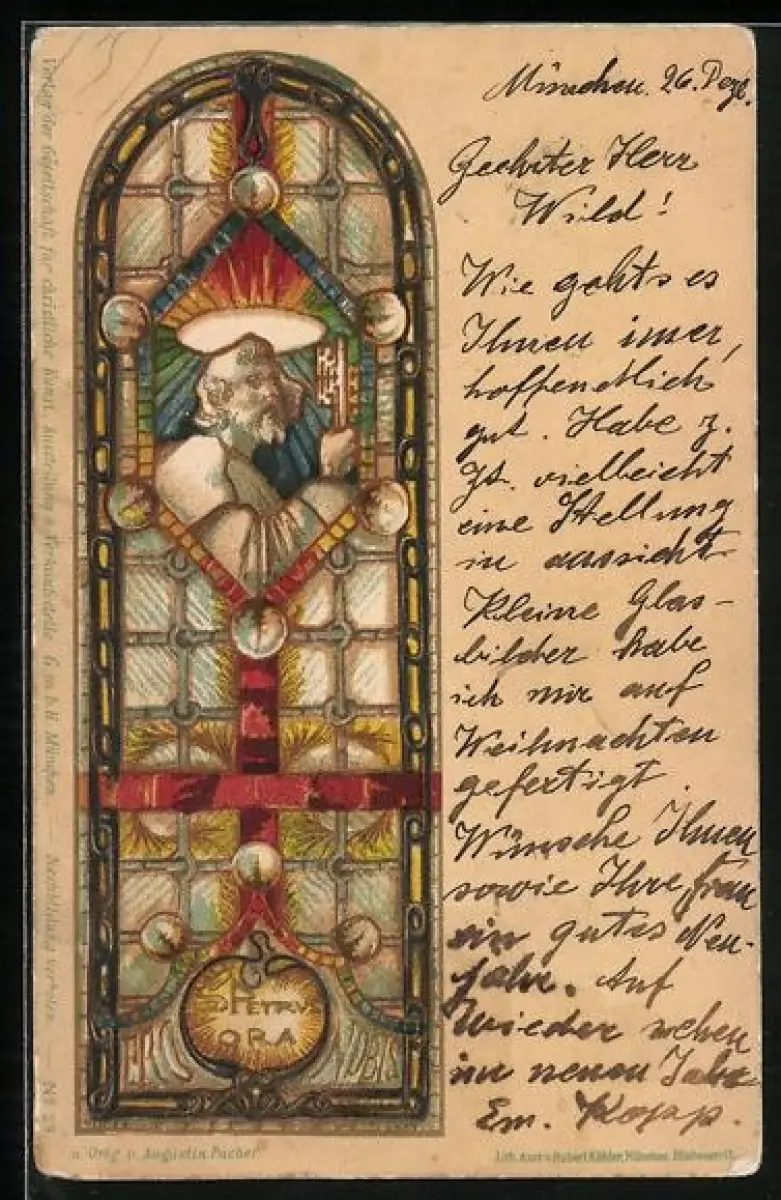 München. 26. Dez.
Geehrter Herr
Wild!
Wie gehts es
Ihnen imer,
hoffendtlich
gut. Habe z.
Zt. vielleicht
eine Stellung
in aussicht
Kleine Glas-
bilder habe
ich mir auf
Weihnachten
gefertigt.
Wünsche Ihnen
sowie Ihre Frau
ein gutes Neu-
jahr. Auf
Wieder sehen
im neuen Jahr
Em. Kopp.
S. PETRUS
ORA
PRO
NOBIS
n. Orig. v. Augustin Pacher
Lith. Anst. v. Hubert Köhler, München.
Verlag der Gesellschaft für christliche Kunst, Ausstellung u. Verkaufsstelle G.m.b.H. München. — Nachbildung verboten. — No 23